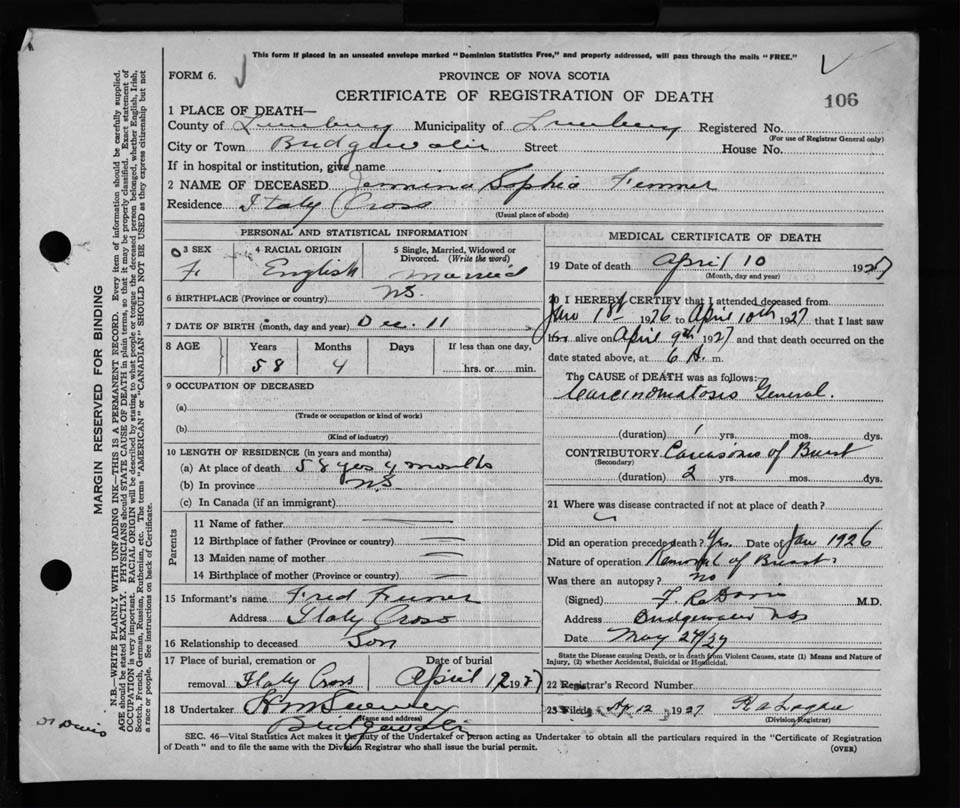 This form if placed in an unsealed envelope marked "Dominion Statistics Free," and properly addressed, will pass through the mails "FREE."
FORM 6.
PROVINCE OF NOVA SCOTIA
CERTIFICATE OF REGISTRATION OF DEATH
106
1 PLACE OF DEATH—
County of Lunenburg Municipality of Lunenburg Registered No.
(For use of Registrar General only)
City or Town Bridgewater Street House No.
If in hospital or institution, give name
2 NAME OF DECEASED Jemmina Sophia
Residence Italy Cross
(Usual place of abode)
PERSONAL AND STATISTICAL INFORMATION
3 SEX 4 RACIAL ORIGIN 5 Single, Married, Widowed or Divorced. (Write the word)
F. English Married
6 BIRTHPLACE (Province or country) N.S.
7 DATE OF BIRTH (month, day and year) Dec. 11
8 AGE Years Months Days If less than one day,
58 4 hrs. or min.
9 OCCUPATION OF DECEASED
(a)
(Trade or occupation or kind of work)
(b)
(Kind of industry)
10 LENGTH OF RESIDENCE (in years and months)
(a) At place of death 58 yrs 4 months
(b) In province N.S.
(c) In Canada (if an immigrant)
Parents
11 Name of father
12 Birthplace of father (Province or country)
13 Maiden name of mother
14 Birthplace of mother (Province or country)
15 Informant's name Fred
Address Italy Cross
16 Relationship to deceased Son
17 Place of burial, cremation or removal Italy Cross
Date of burial April 12 1927
18 Undertaker
(Name and address)
Bridgewater
MEDICAL CERTIFICATE OF DEATH
19 Date of death April 10 1927
(Month, day and year)
20 I HEREBY CERTIFY that I attended deceased from
Jan 1st 1926 to April 10th 1927 that I last saw
alive on April 9th 1927 and that death occurred on the
date stated above, at 6 A. m.
The CAUSE of DEATH was as follows:
Carcinomatosis General.
(duration) 1 yrs. mos. dys.
CONTRIBUTORY of Breast
(Secondary)
(duration) 2 yrs. mos. dys.
21 Where was disease contracted if not at place of death?
Did an operation precede death? Yes. Date of Jan 1926
Nature of operation Removal of Breast
Was there an autopsy? no
(Signed) Davis M.D.
Address Bridgewater NS
Date May 24/27
State the Disease causing Death, or in death from Violent Causes, state (1) Means and Nature of Injury, (2) whether Accidental, Suicidal or Homicidal.
22 Registrar's Record Number
23 Filed Ap 12 1927
(Division Registrar)
SEC. 46—Vital Statistics Act makes it the duty of the Undertaker or person acting as Undertaker to obtain all the particulars required in the "Certificate of Registration
of Death" and to file the same with the Division Registrar who shall issue the burial permit. (OVER)
MARGIN RESERVED FOR BINDING
N.B.—WRITE PLAINLY WITH UNFADING INK—THIS IS A PERMANENT RECORD. Every item of information should be carefully supplied.
AGE should be stated EXACTLY. PHYSICIANS should STATE CAUSE OF DEATH in plain terms, so that it may be properly classified. Exact statement of
OCCUPATION is very important. RACIAL ORIGIN will be described by stating to what people or tongue the deceased person belonged, whether English, Irish,
Scotch, French, German, Russian, Ruthenian, etc. The terms "AMERICAN" or "CANADIAN" SHOULD NOT BE USED as they express citizenship but not
a race or people. See instructions on back of Certificate.
Dr Davis